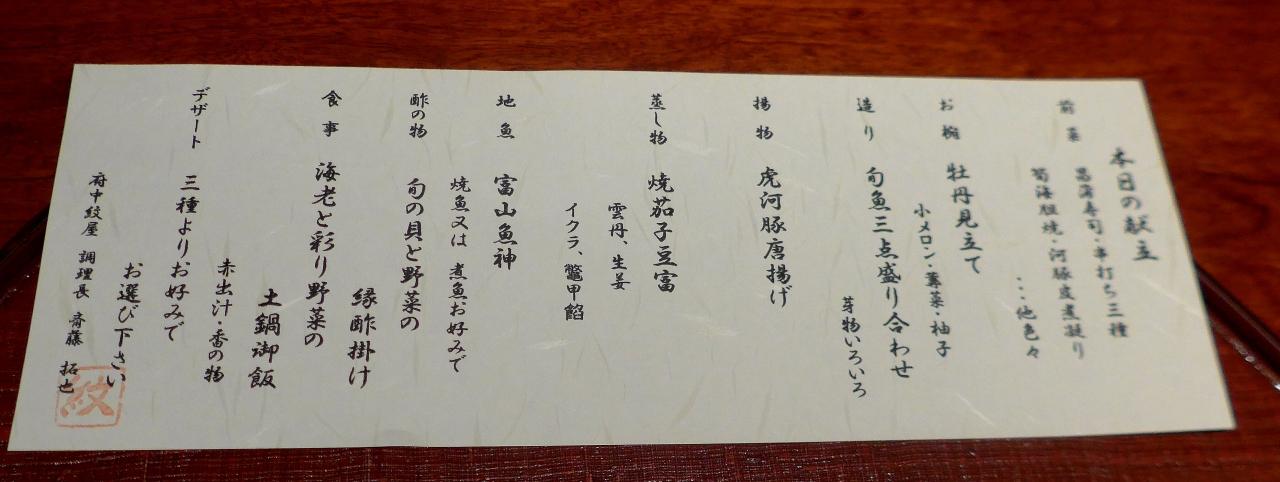 本日の献立
前菜 菖蒲寿司・串打ち三種
筍海胆焼・河豚皮煮凝り
・・・他色々
お椀 牡丹見立て
小メロン・蓴菜・柚子
造り 旬魚三点盛り合わせ
芽物いろいろ
揚物 虎河豚唐揚げ
蒸し物 焼茄子豆富
雲丹、生姜
イクラ、鼈甲餡
地魚 富山魚神
焼魚又は 煮魚お好みで
酢の物 旬の貝と野菜の
縁酢掛け
食事 海老と彩り野菜の
土鍋御飯
赤出汁・香の物
デザート 三種よりお好みで
お選び下さい
府中紋屋 調理長 齋藤 拓也
紋